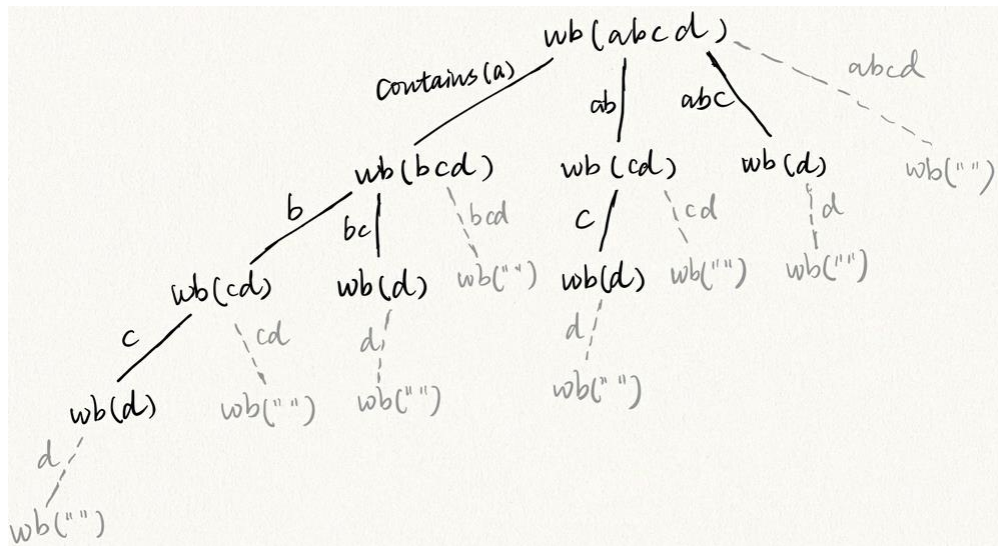 wb(abcd)
Contains(a)
ab
abc
abcd
wb(bcd)
wb(cd)
wb(d)
wb("")
b
bc
bcd
c
cd
d
wb(cd)
wb(d)
wb("")
wb(d)
wb("")
wb("")
c
cd
d
d
wb(d)
wb("")
wb("")
wb("")
d
wb("")